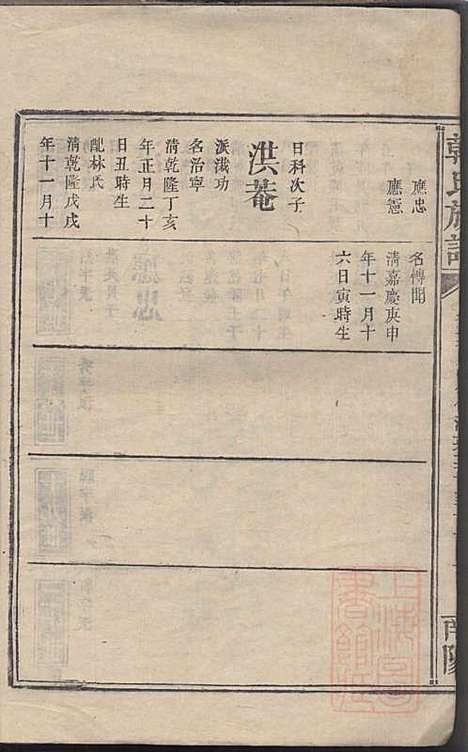 應忠
應憲
日科次子
洪菴
派濈功
名治寧
清乾隆丁亥
年正月二十
日丑時生
配林氏
清乾隆戊戌
年十一月十
名傳聞
清嘉慶庚申
年十一月十
六日寅時生
韓氏族譜
南陽